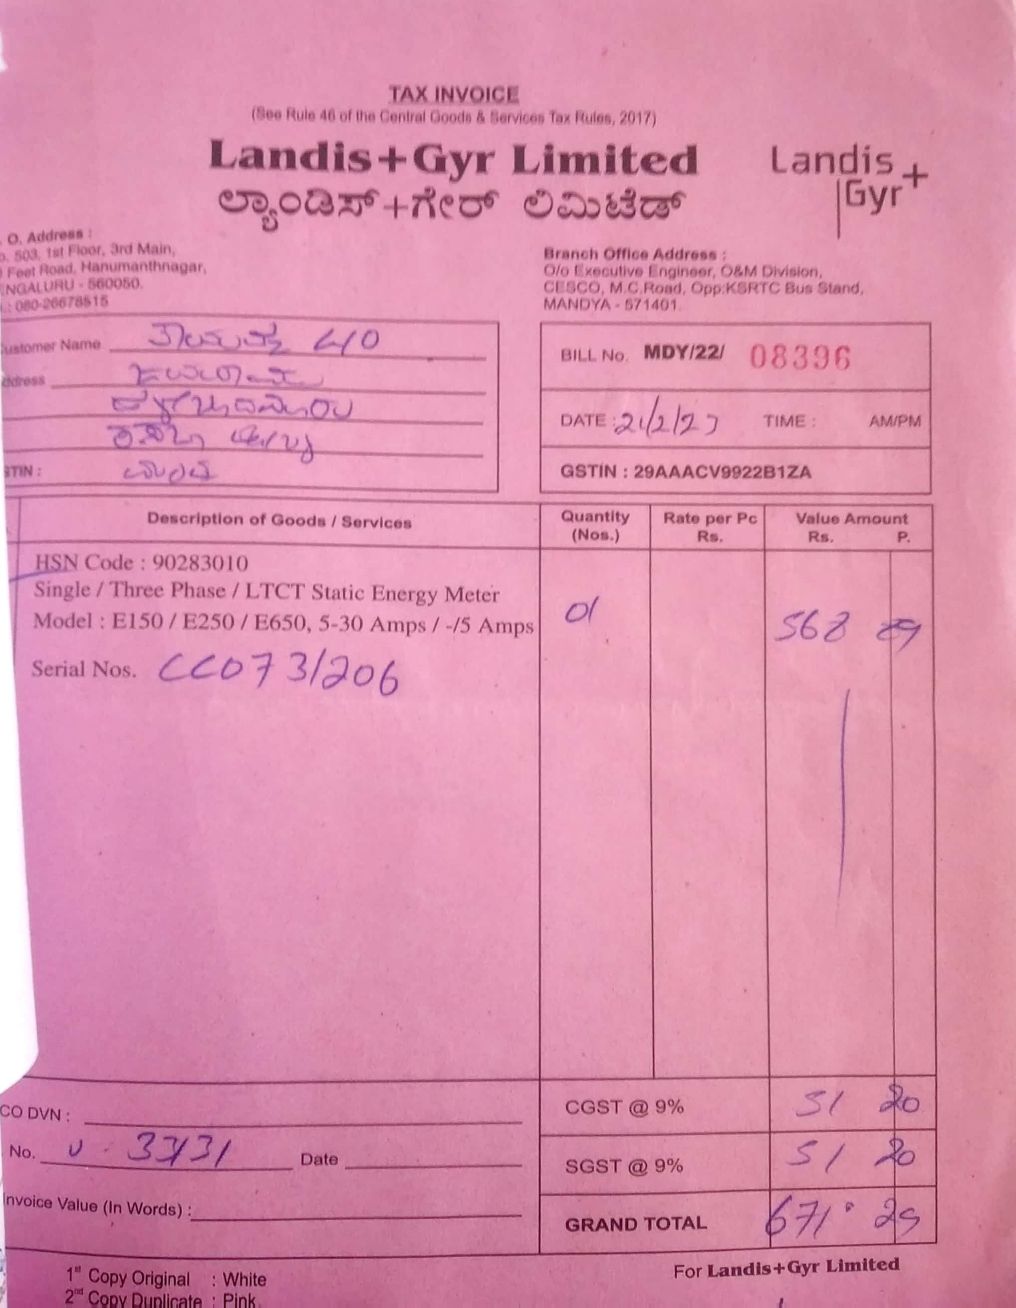 TAX INVOICE
(See Rule 46 of the Central Goods & Services Tax Rules, 2017)
Landis+Gyr Limited
ಲ್ಯಾಂಡಿಸ್+ಗೇರ್ ಲಿಮಿಟೆಡ್
Landis
Gyr+
. O. Address :
o. 503, 1st Floor, 3rd Main,
Feet Road, Hanumanthnagar,
NGALURU - 560050.
.: 080-26678515
Branch Office Address :
O/o Executive Engineer, O&M Division,
CESCO, M.C.Road, Opp:KSRTC Bus Stand,
MANDYA - 571401.
ustomer Name
ddress
STIN :
BILL No. MDY/22/ 08396
DATE : 21/2/23 TIME : AM/PM
GSTIN : 29AAACV9922B1ZA
Description of Goods / Services Quantity (Nos.) Rate per Pc Rs. Value Amount Rs. P.
HSN Code : 90283010
Single / Three Phase / LTCT Static Energy Meter
Model : E150 / E250 / E650, 5-30 Amps / -/5 Amps 01 568 89
Serial Nos. CC073/206
CO DVN :
CGST @ 9% 51 20
No. 3731 Date
SGST @ 9% 51 20
nvoice Value (In Words) :
GRAND TOTAL 671 29
1st Copy Original : White
2nd Copy Duplicate : Pink
For Landis+Gyr Limited